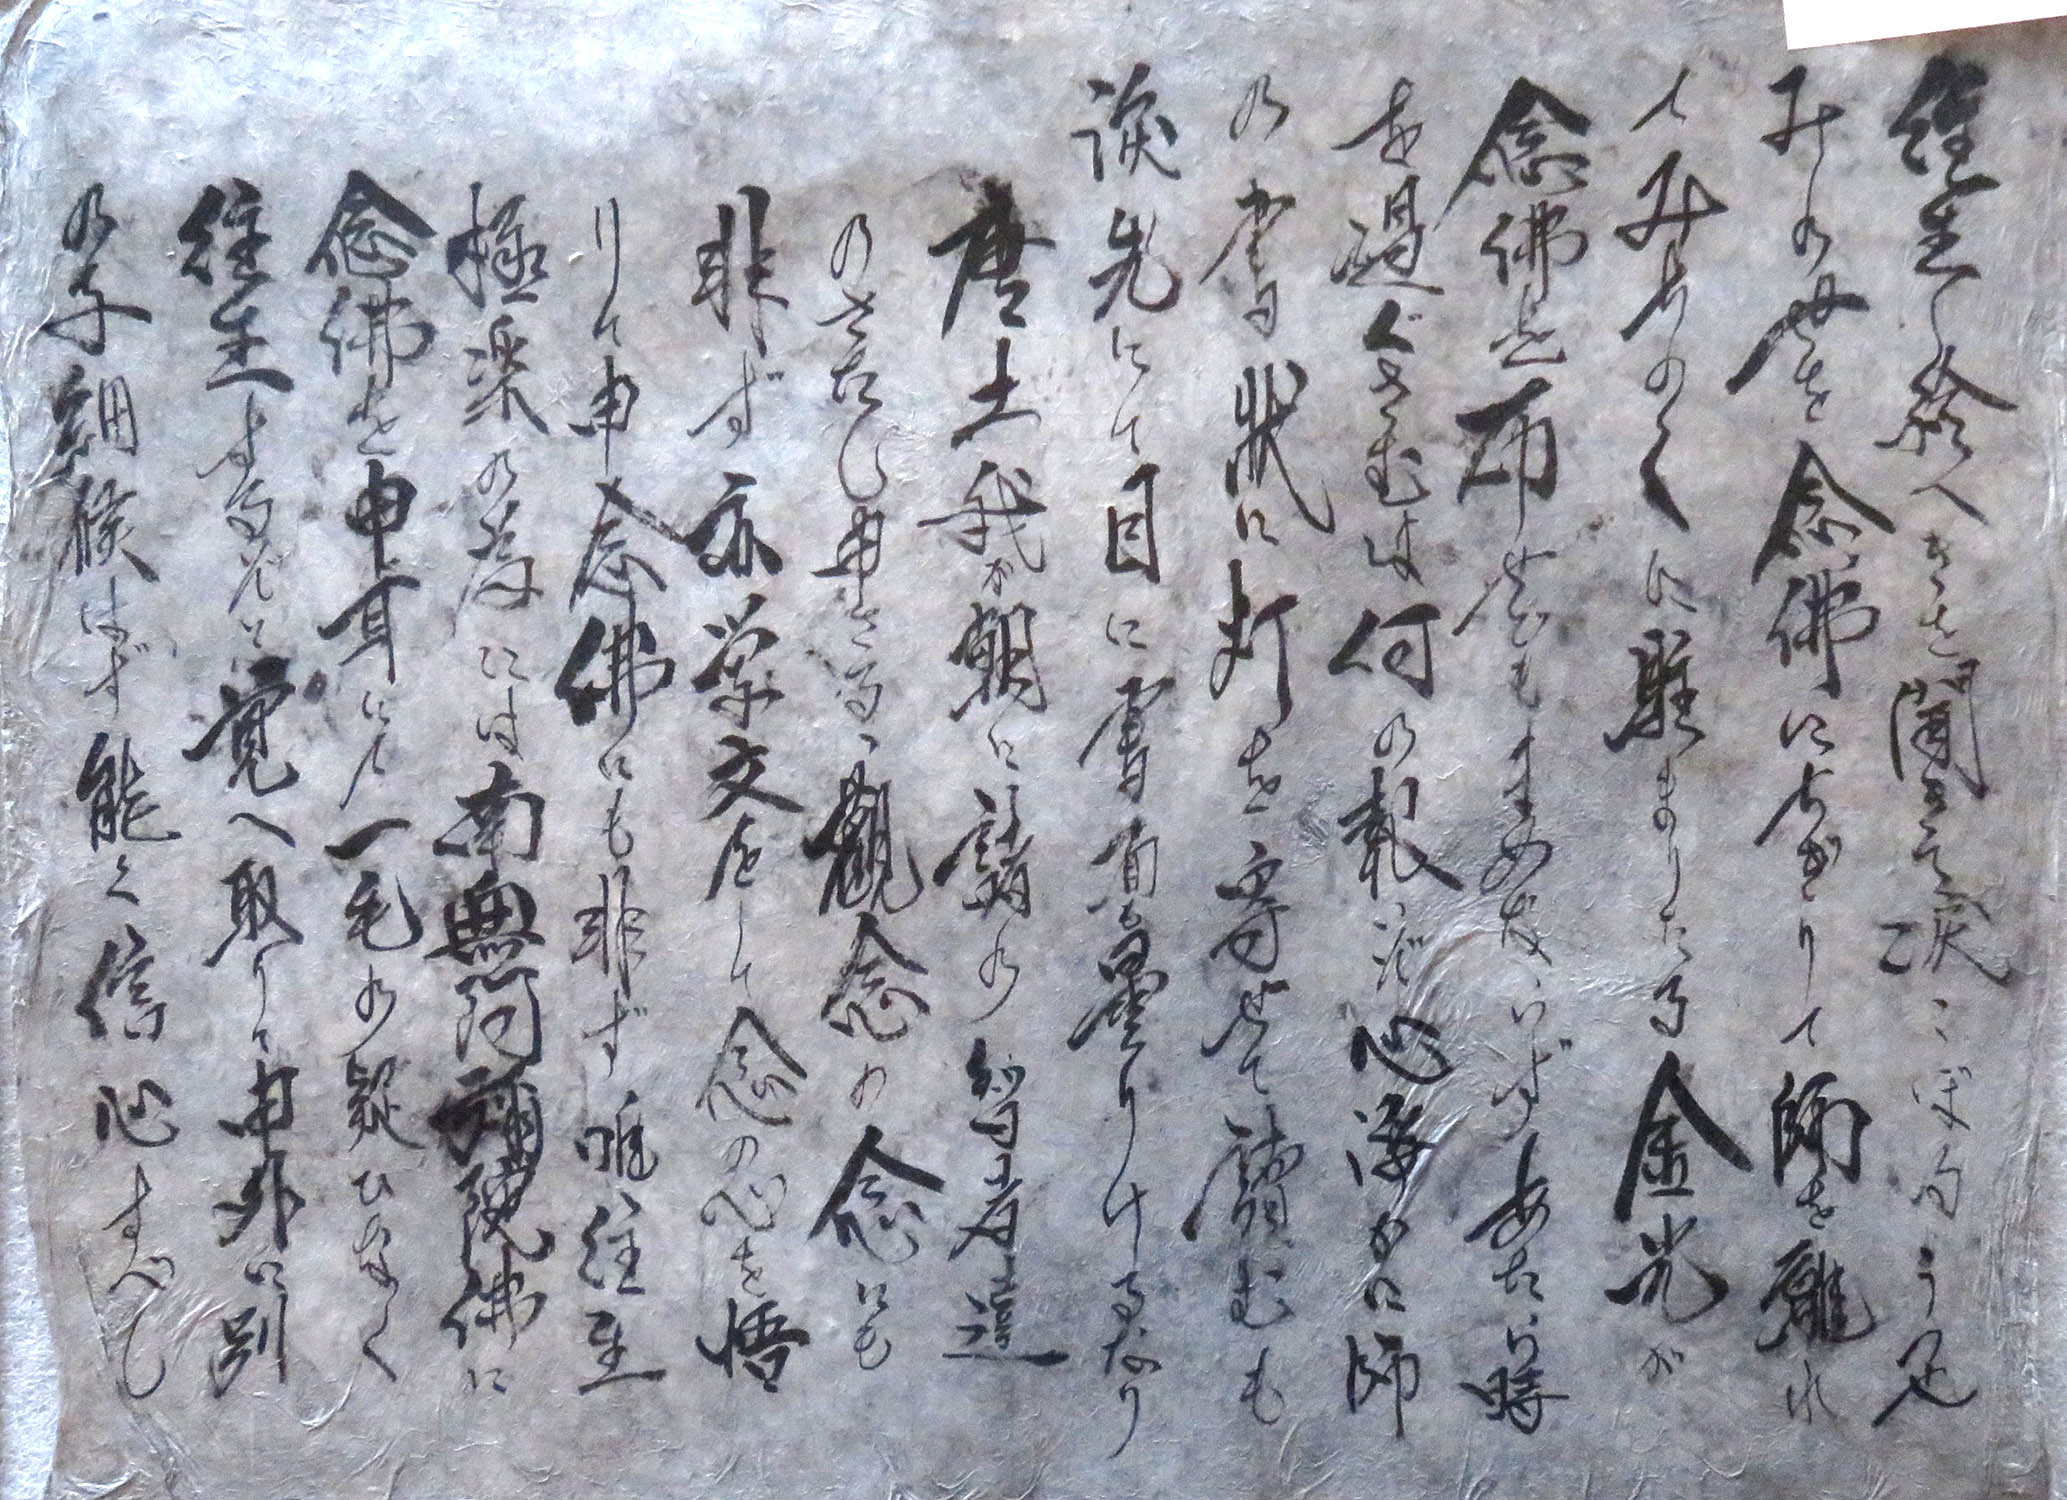 往生し給へきを聞きて涙こぼるう也
みの母を念佛にちぎりて師を離れ
てみちのくに駐まりたる金光が
念佛を布せどもすゝめがいずあたら時
を過ぐさむは何の報いぞ心海かに師
の書状に灯を寄せて讀むも
涙先にて目に書面も曇りけるなり
唐土我が朝に諸の智者達
のさたし申さる觀念の念にも
非ず亦学文をして念の心を悟
りて申念佛にも非ず唯往生
極楽の為には南無阿彌陀佛に
念佛を申耳にて一毛の疑ひなく
往生するぞと覚へ取りて申外に別
の子細候はず能く信心すべし